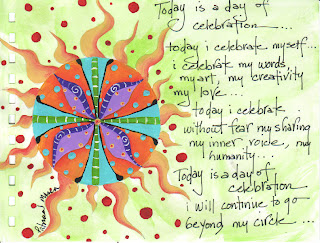 Today is a day of
celebration...
today i celebrate myself...
i celebrate my words,
my art, my creativity
my love...
today i celebrate
without fear my sharing
my inner voice, my
humanity...
Today is a day of
celebration
i will continue to go
beyond my circle...